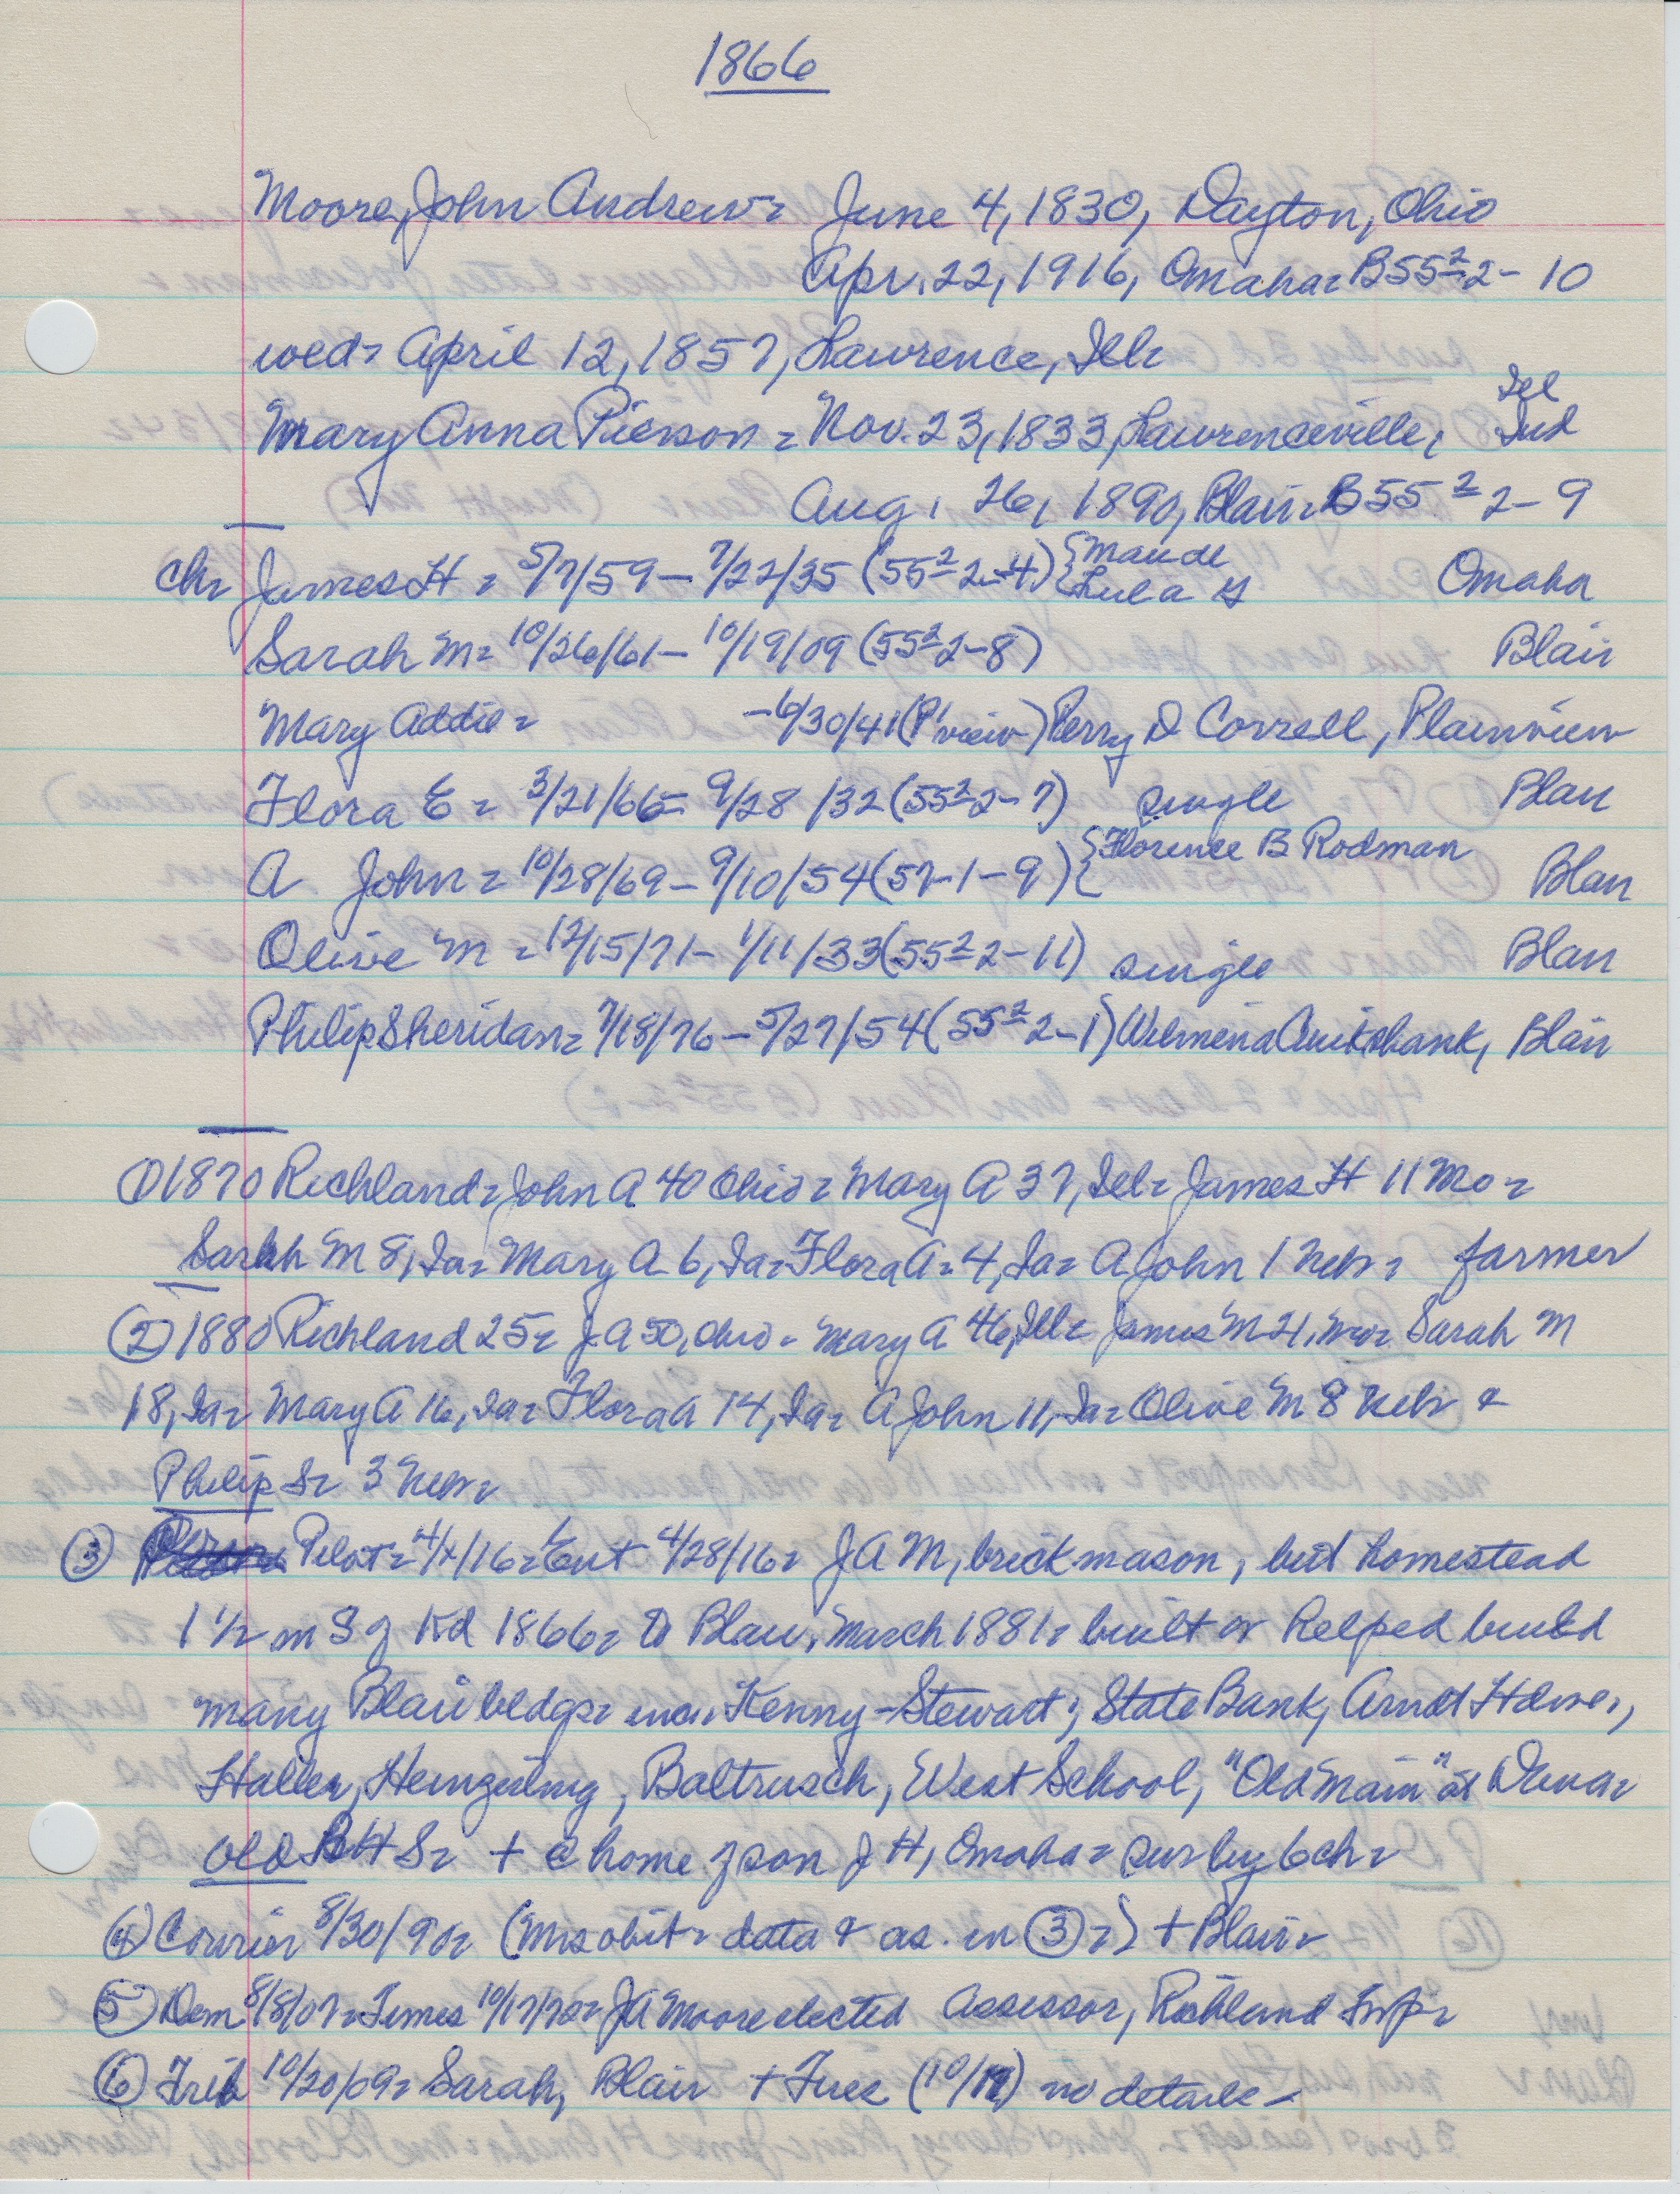 1866
Moore, John Andrew = June 4, 1830, Dayton, Ohio
Apr. 22, 1916, Omaha = B55 2/2 - 10
wed = April 12, 1857, Lawrence, Ill =
Ill
Mary Anna Pierson = Nov. 23, 1833, Lawrenceville, Ind
Aug. 26, 1890, Blair = B55 2/2 - 9
ch = James H = 5/7/59 - 7/22/35 (55 2/2 - 4) { Maude { Lula G Omaha
Sarah M = 10/26/61 - 10/19/09 (55 2/2 - 8) Blair
Mary Addie = - 6/30/41 (P'view) Perry D Correll, Plainview
Flora E = 3/21/66 - 9/28/32 (55 2/2 - 7) single Blair
A John = 10/28/69 - 9/10/54 (57-1-9) { Florence B Rodman Blair
Olive M = 12/15/71 - 1/11/33 (55 2/2 - 11) single Blair
Philip Sheridan = 7/18/76 - 5/27/54 (55 2/2 - 1) Wilmena Cruikshank, Blair
① 1870 Richland = John A 40 Ohio = Mary A 37, Ill = James H 11 Mo =
Sarah M 8, Ia = Mary A 6, Ia = Flora A = 4, Ia = A John 1 Nebr = farmer
② 1880 Richland 25 = J A 50, Ohio = Mary A 46, Ill = James M 21, Mo = Sarah M
18, Ia = Mary A 16, Ia = Flora A 14, Ia = A John 11, Ia = Olive M 8 Nebr &
Philip S = 3 Nebr =
③ Pilot = 4/x/16 = Ent 4/28/16 = J A M, brick mason, but homestead
1 1/2 m S of Kd 1866 = to Blair, March 1881 = built or helped build
many Blair bldgs = inc. Kenny-Stewart; State Bank, Arndt House,
Haller, Hemzeling, Baltrusch, West School, "Old Main" at Dana =
old BHS = + @ home of son J H, Omaha = sur by 6 ch =
④ Courier 8/30/90 = (Mrs obit = data & as in ③ =) + Blair =
⑤ Dem 8/8/07 = Times 10/17/72 = JA Moore elected assessor, Richland Twp =
⑥ Trib 10/20/09 = Sarah, Blair + Tues (10/19) no details -